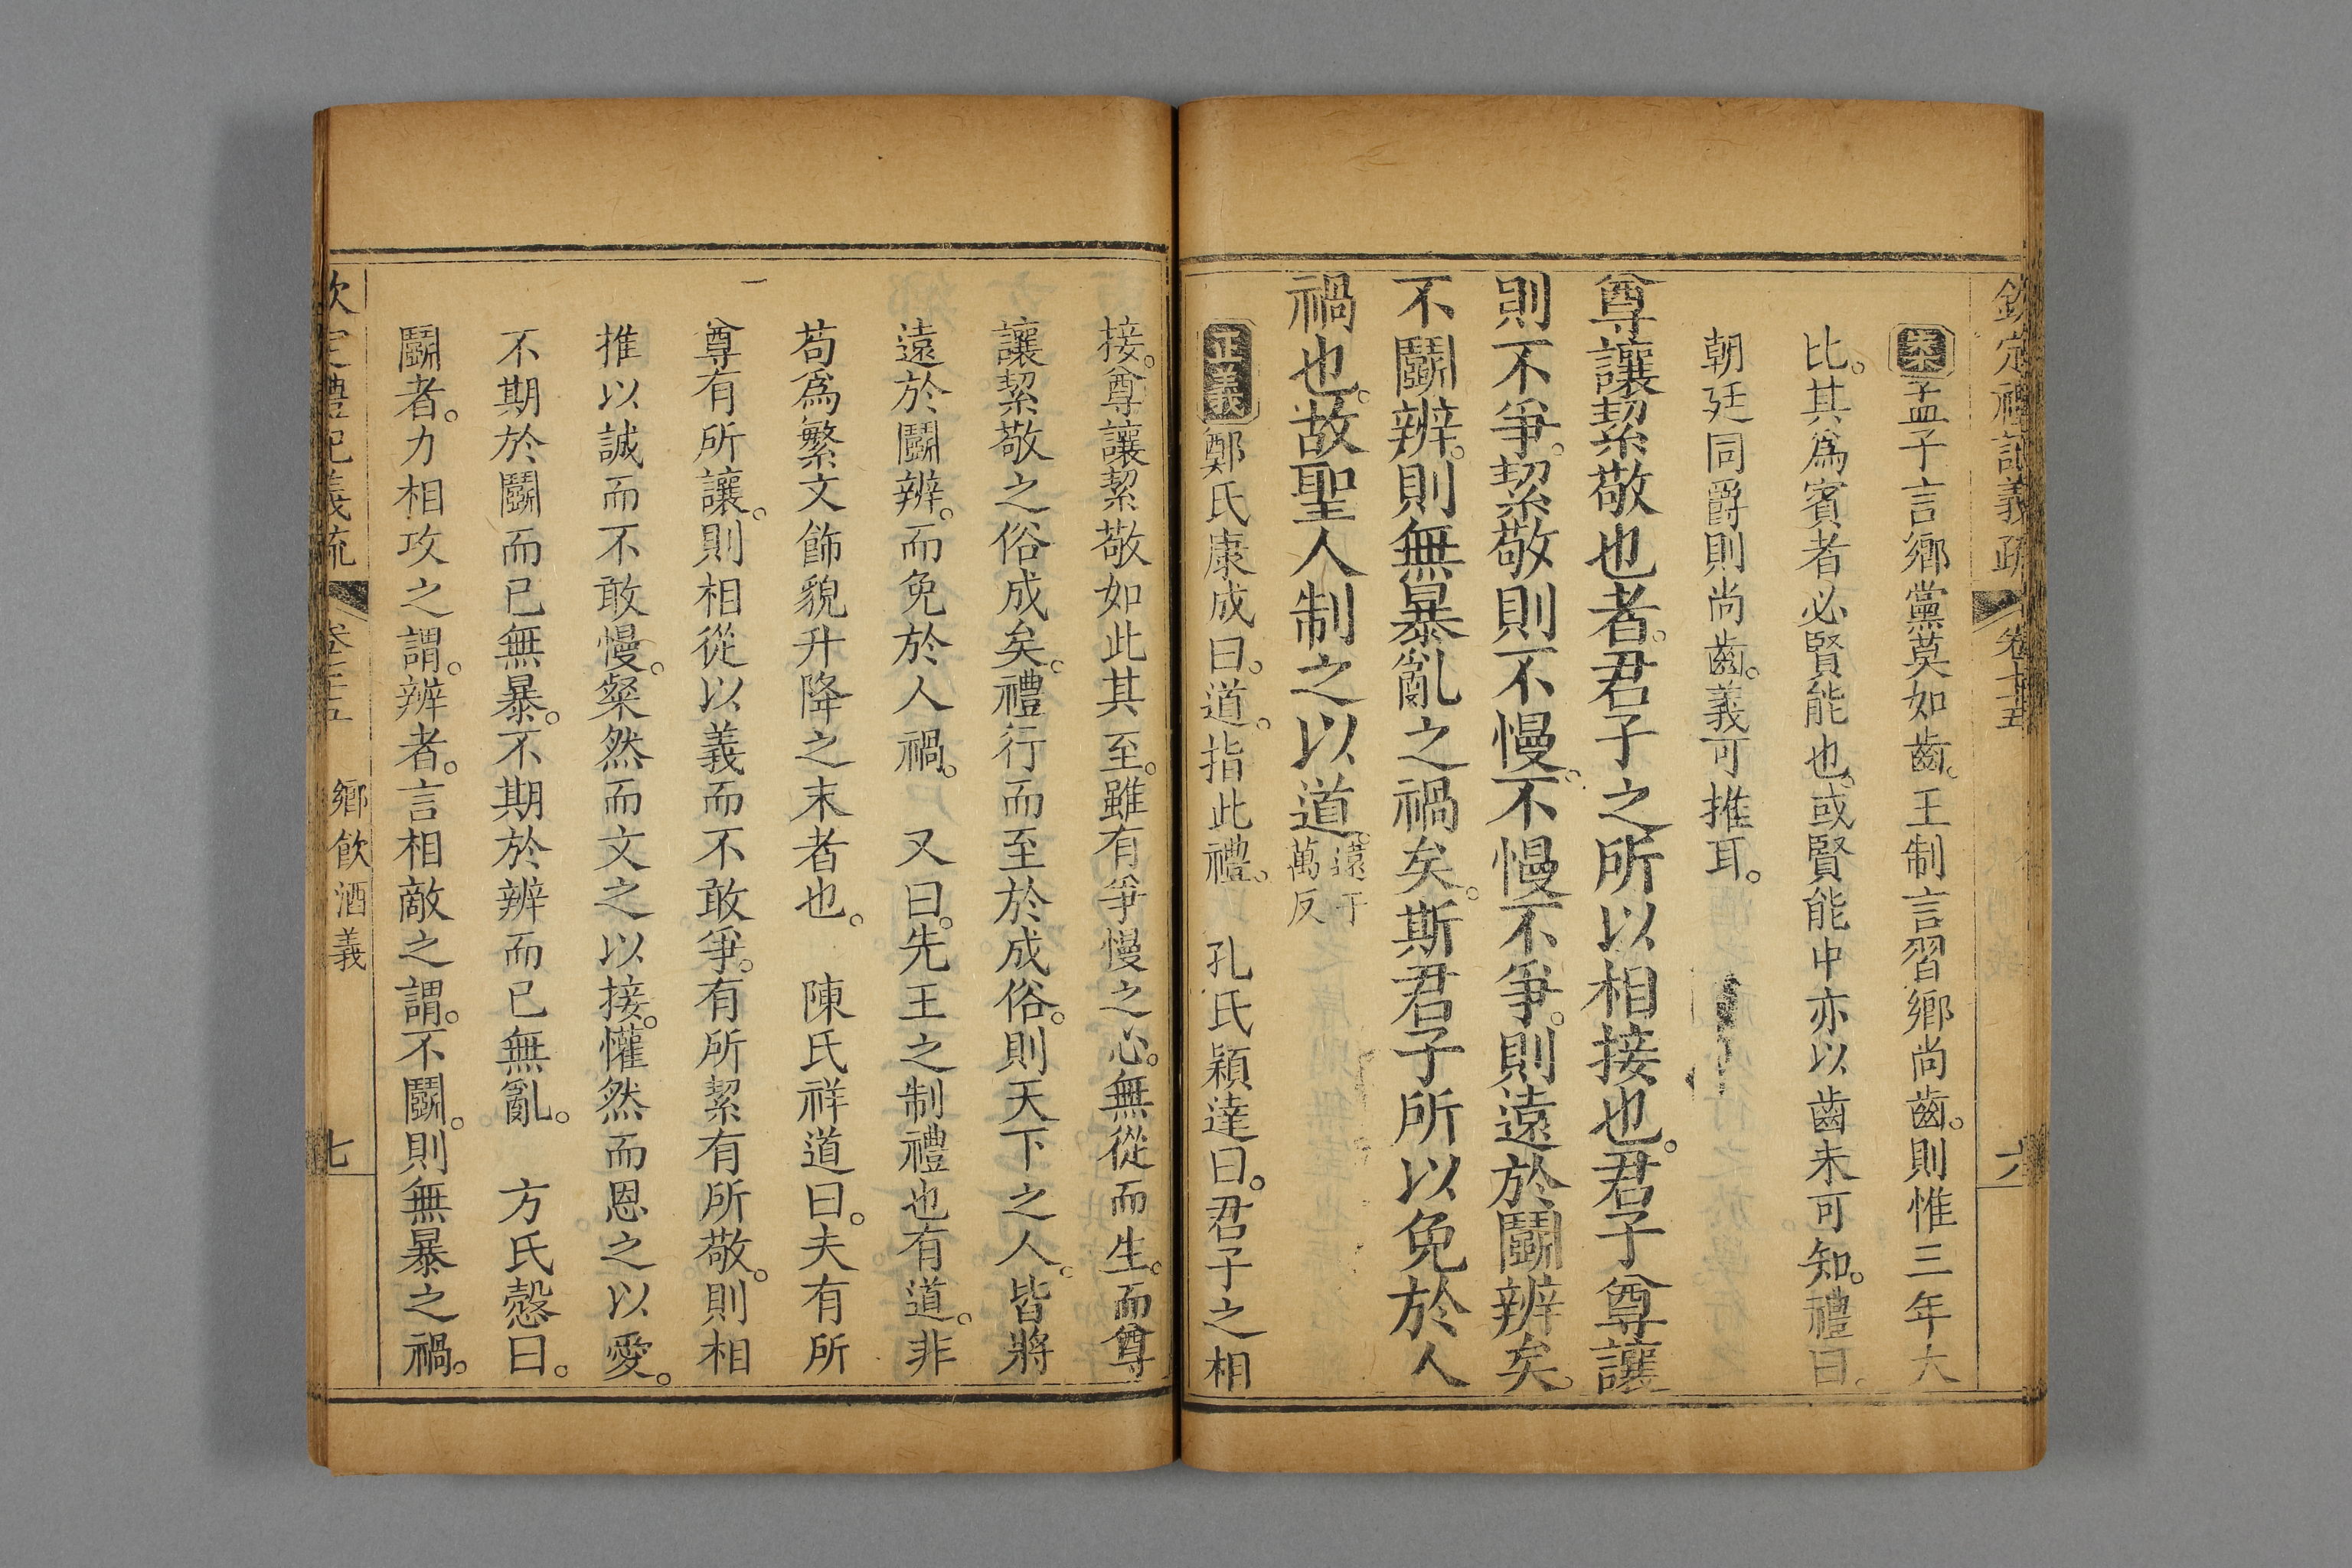 欽定禮記義疏 卷七十五 六
案孟子言鄉黨莫如齒。王制言習鄉尚齒。則惟三年大
比。其爲賓者必賢能也。或賢能中亦以齒未可知。禮曰。
朝廷同爵則尚齒。義可推耳。
尊讓絜敬也者。君子之所以相接也。君子尊讓
則不爭。絜敬則不慢。不慢不爭。則遠於鬬辨矣。
不鬬辨。則無暴亂之禍矣。斯君子所以免於人
禍也。故聖人制之以道。遠于萬反
正義鄭氏康成曰。道。指此禮。 孔氏穎達曰。君子之相
接。尊讓絜敬如此其至。雖有爭慢之心。無從而生。而尊
讓絜敬之俗成矣。禮行而至於成俗。則天下之人。皆將
遠於鬬辨。而免於人禍。 又曰。先王之制禮也有道。非
苟爲繁文飾貌升降之末者也。 陳氏祥道曰。夫有所
尊有所讓。則相從以義而不敢爭。有所絜有所敬。則相
推以誠而不敢慢。粲然而文之以接。懽然而恩之以愛。
不期於鬬而已無暴。不期於辨而已無亂。 方氏慤曰。
鬬者。力相攻之謂。辨者。言相敵之謂。不鬬。則無暴之禍。
欽定禮記義疏 卷七十五 鄉飲酒義 七